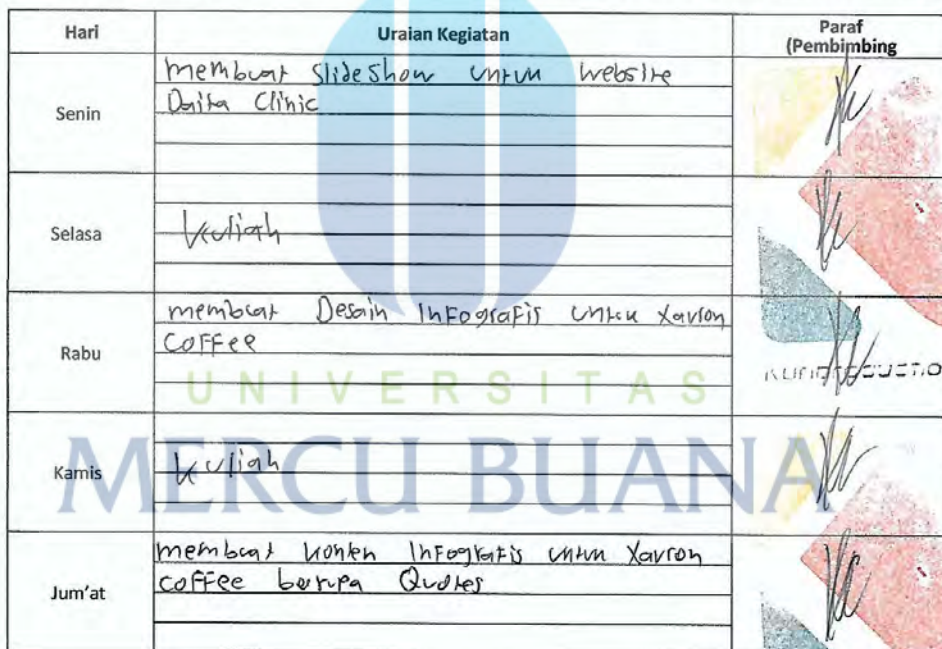 Hari Uraian Kegiatan Paraf
(Pembimbing
Senin
membuat SlideShow untuk website
Daita Clinic
Selasa
kuliah
Rabu
membuat Desain Infografis untuk Xavron
Coffee
UNIVERSITAS
MERCU BUANA
Kamis
kuliah
Jum'at
membuat konten Infografis untuk Xavron
coffee berupa Quotes